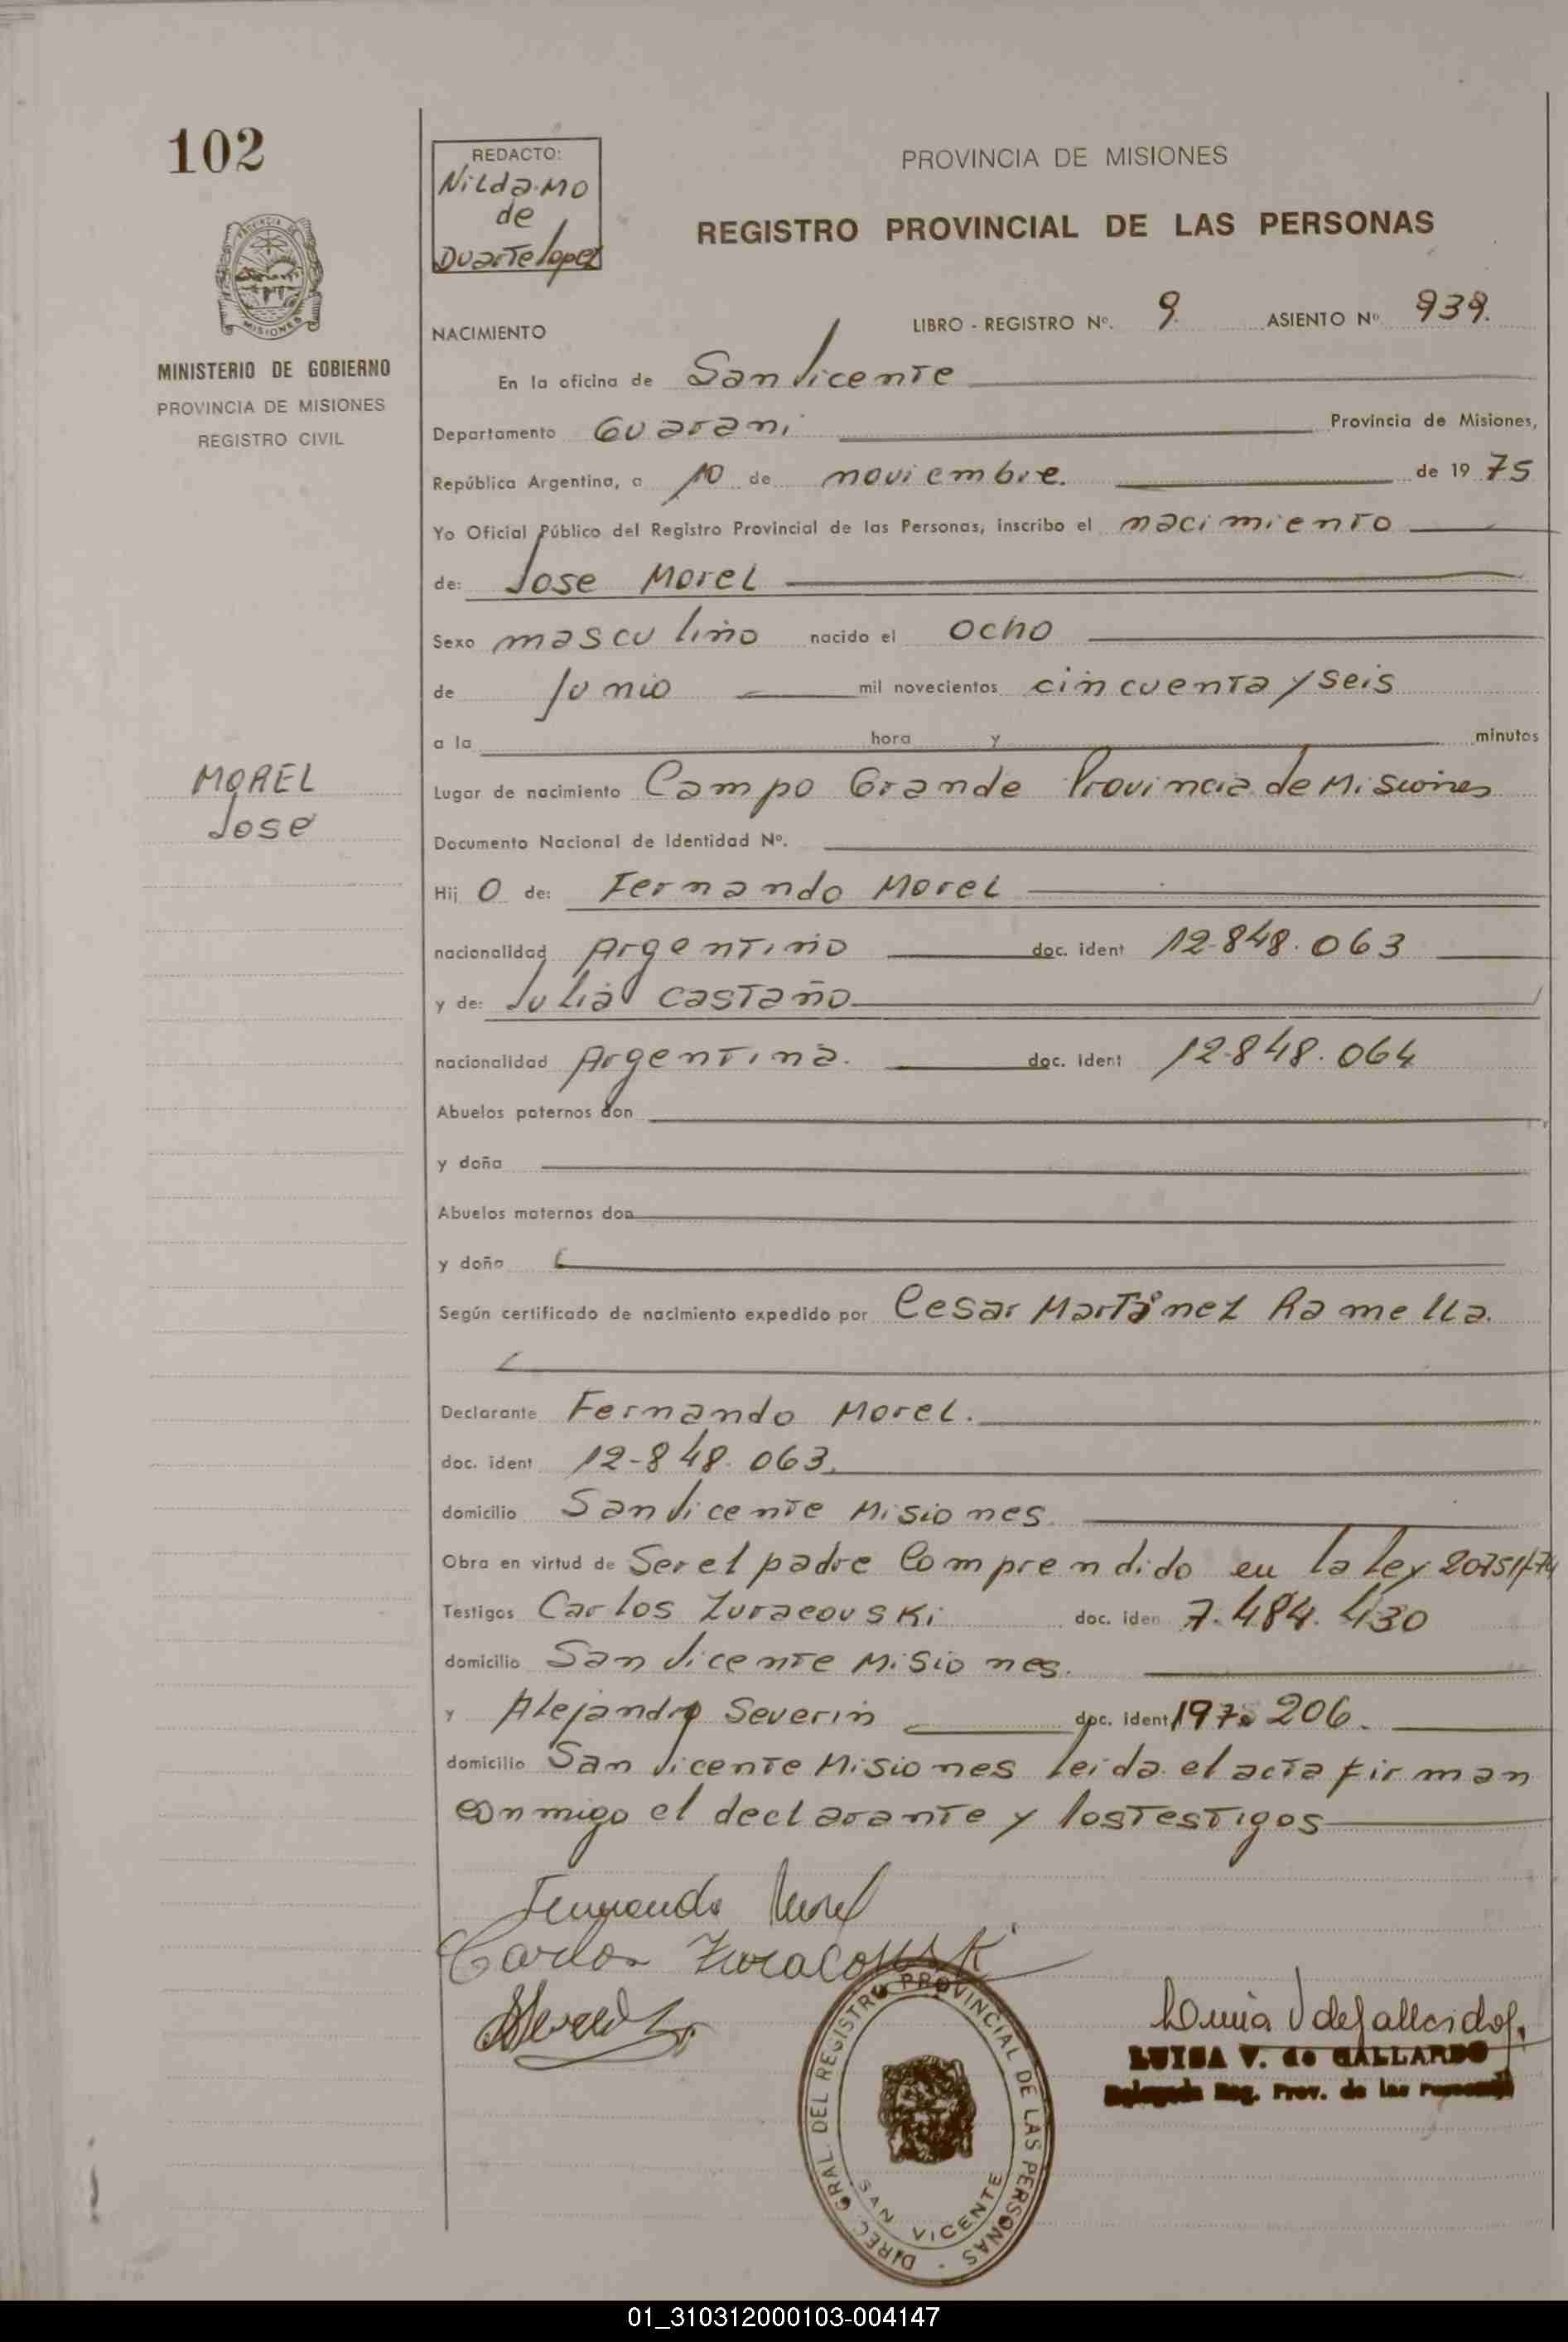 102
PROVINCIA DE
MISIONES
MINISTERIO DE GOBIERNO
PROVINCIA DE MISIONES
REGISTRO CIVIL
MOREL
Jose
REDACTO:
Nilda Mo
de
Duarte lopez
PROVINCIA DE MISIONES
REGISTRO PROVINCIAL DE LAS PERSONAS
NACIMIENTO LIBRO - REGISTRO Nº. 9. ASIENTO Nº 939.
En la oficina de San Vicente
Departamento Guarani Provincia de Misiones,
República Argentina, a 10 de noviembre. de 19 75
Yo Oficial Público del Registro Provincial de las Personas, inscribo el nacimiento
de: Jose Morel
Sexo masculino nacido el ocho
de Junio mil novecientos cincuenta y seis
a la hora y minutos
Lugar de nacimiento Campo Grande Provincia de Misiones
Documento Nacional de Identidad Nº.
Hij o de: Fernando Morel
nacionalidad Argentino doc. ident 12-848.063
y de: Julia Castaño
nacionalidad Argentina. doc. ident 12-848.064
Abuelos paternos don
y doña
Abuelos maternos don
y doña
Según certificado de nacimiento expedido por Cesar Martinez Ramella.
Declarante Fernando Morel.
doc. ident 12-848.063.
domicilio San Vicente Misiones.
Obra en virtud de Ser el padre Comprendido en la Ley 20751/74
Testigos Carlos Zuracouski doc. iden 7.484.430
domicilio San Vicente Misiones.
y Alejandro Severin doc. ident 206.
domicilio San Vicente Misiones leida el acta firman
conmigo el declarante y los testigos
Fernando Morel
Carlos Zuracouski
DIREC. GRAL. DEL REGISTRO PROVINCIAL DE LAS PERSONAS -
SAN VICENTE
LUISA V. de GALLARDO
Delegada Reg. Prov. de las Personas
01_310312000103-004147